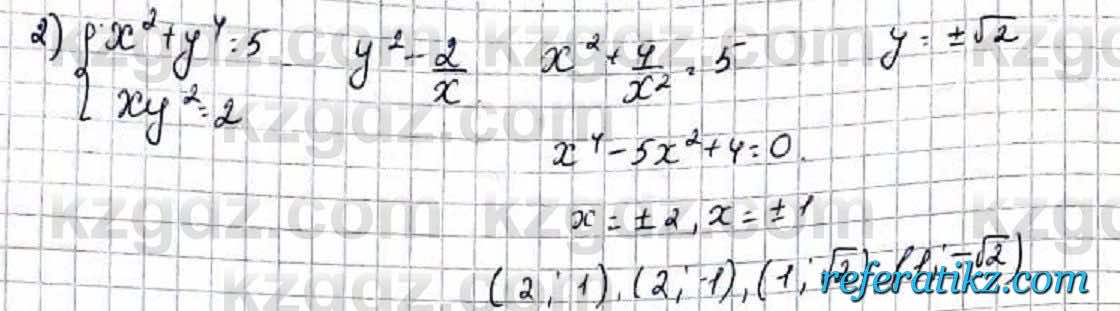 2) { x² + y⁴ = 5    y² - 2/x    x² + 4/x² = 5    y = ±√2
xy² = 2
x⁴ - 5x² + 4 = 0.
x = ± 2, x = ± 1
(2; 1), (2; -1), (1; √2), (1; -√2)
kzgdz.com
referatikz.com